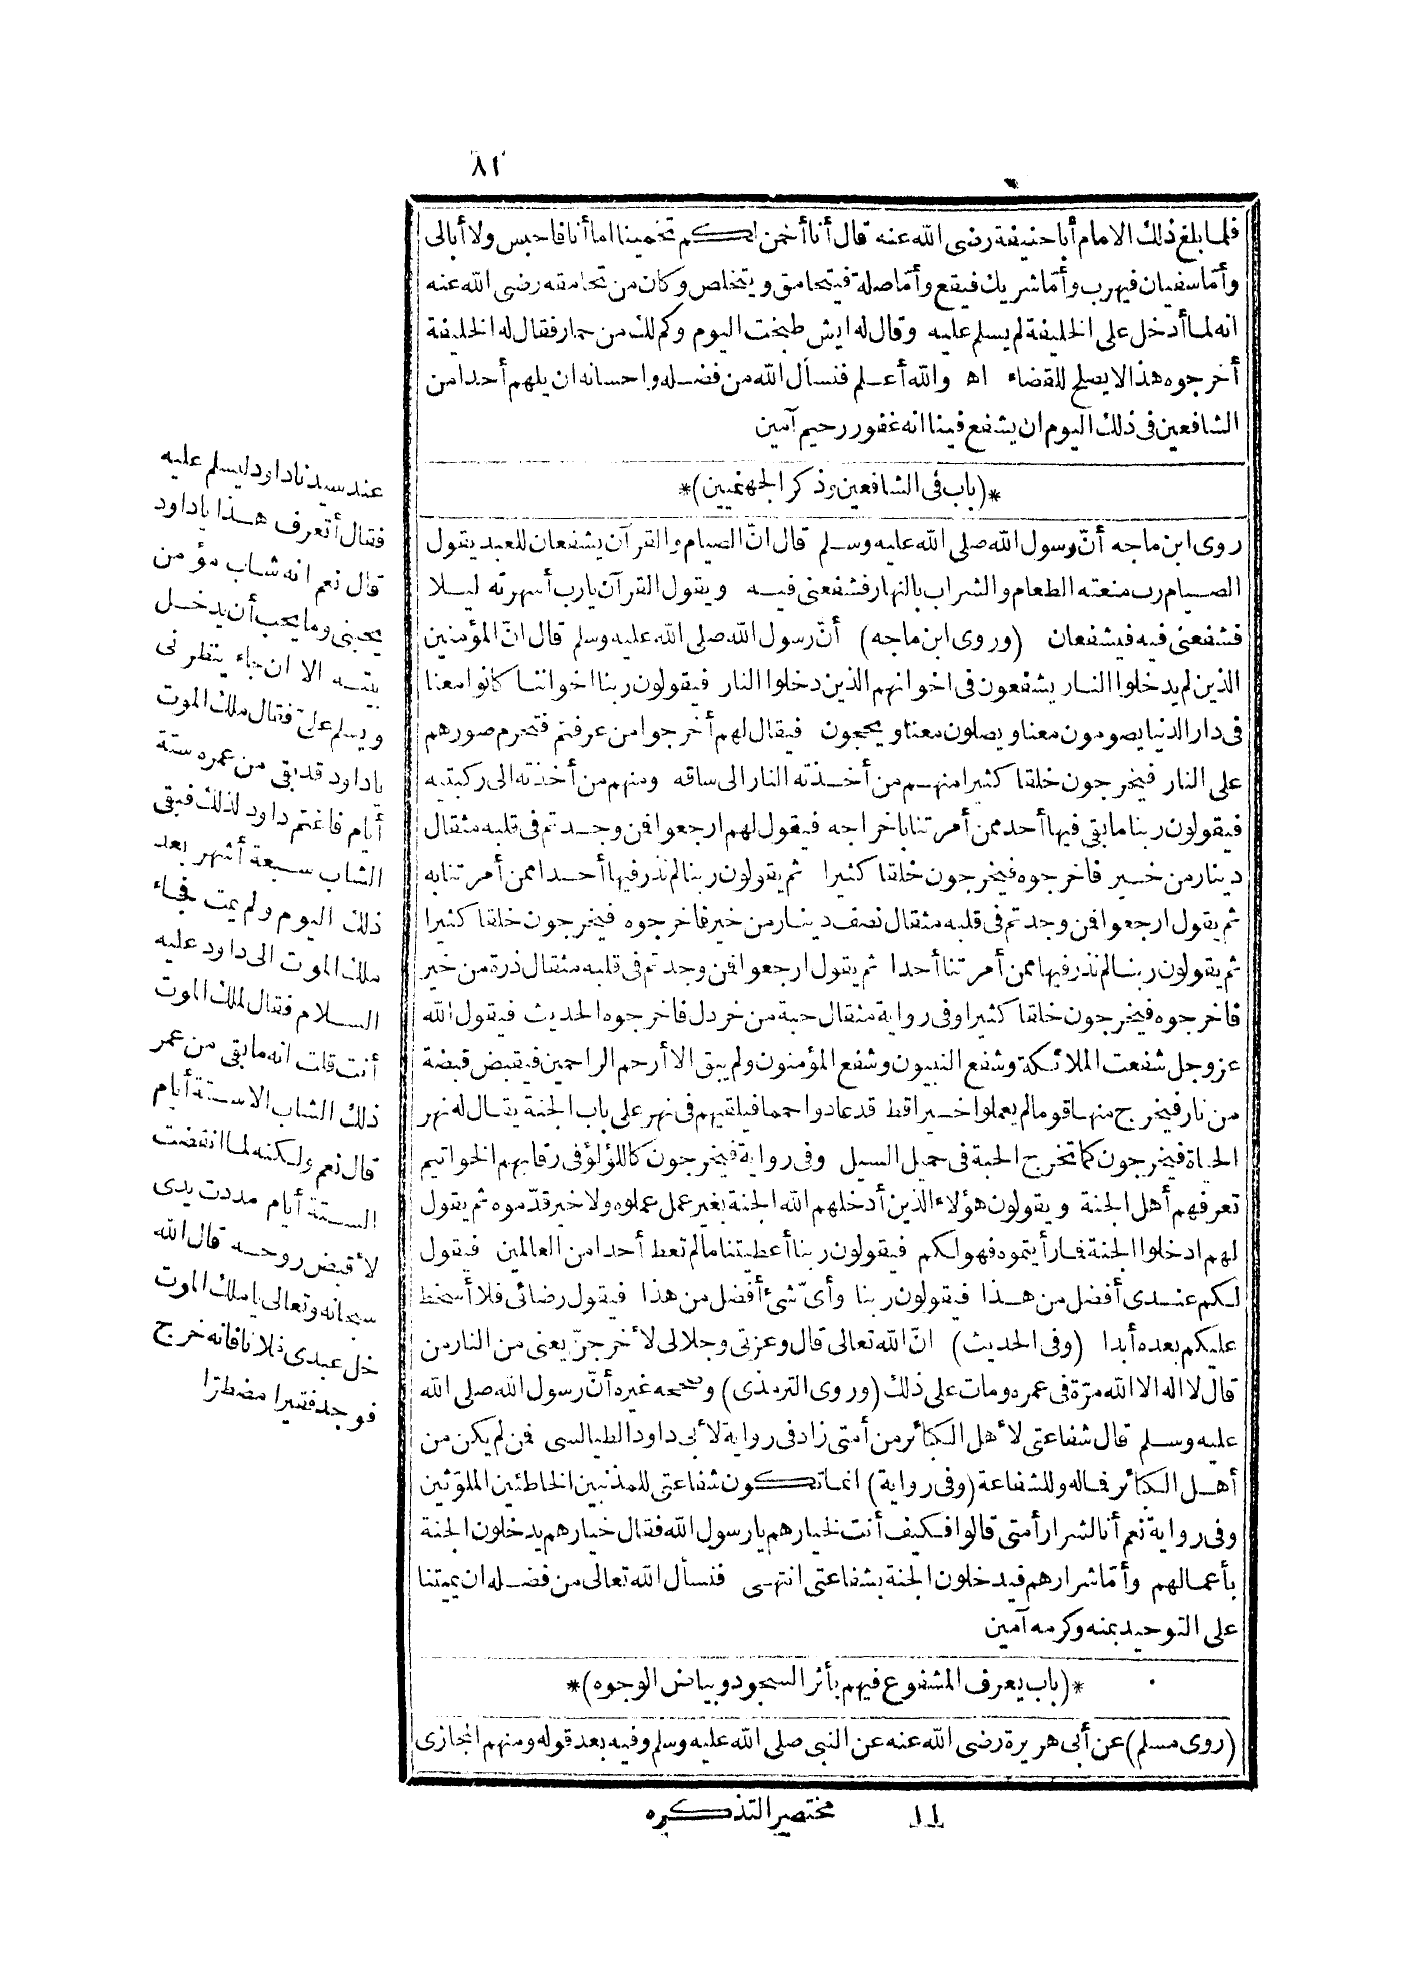 ٨١
فلما بلغ ذلك الامام أبا حنيفة رضى الله عنه قال أنا أخمن لكم تخمينا اما أنا فاحبس ولا أبالى
وأمّا سفيان فيهرب وأمّا شريك فيقع وأمّا صلة فيتحامق ويتخلص وكان من تحامقه رضى الله عنه
انه لما أدخل على الخليفة لم يسلم عليه وقال له ايش طبخت اليوم وكم لك من حمار فقال له الخليفة
أخرجوه هذا لا يصلح للقضاء اه والله أعلم فنسأل الله من فضله واحسانه ان يلهم أحدا من
الشافعين فى ذلك اليوم ان يشفع فينا انه غفور رحيم آمين
*(باب فى الشافعين وذكر الجهنميين)*
روى ابن ماجه أنّ رسول الله صلى الله عليه وسلم قال انّ الصيام والقرآن يشفعان للعبد يقول
الصيام رب منعته الطعام والشراب بالنهار فشفعنى فيه ويقول القرآن يارب أسهرته ليلا
فشفعنى فيه فيشفعان (وروى ابن ماجه) أنّ رسول الله صلى الله عليه وسلم قال انّ المؤمنين
الذين لم يدخلوا النار يشفعون فى اخوانهم الذين دخلوا النار فيقولون ربنا اخواننا كانوا معنا
فى دار الدنيا يصومون معنا ويصلون معنا ويحجون فيقال لهم أخرجوا من عرفتم فتحرم صورهم
على النار فيخرجون خلقا كثيرا منهم من أخذته النار الى ساقه ومنهم من أخذته الى ركبتيه
فيقولون ربنا ما بقى فيها أحد ممن أمرتنا باخراجه فيقول لهم ارجعوا فمن وجدتم فى قلبه مثقال
دينار من خير فاخرجوه فيخرجون خلقا كثيرا ثم يقولون ربنا لم نذر فيها أحدا ممن أمرتنا به
ثم يقول ارجعوا فمن وجدتم فى قلبه مثقال نصف دينار من خير فاخرجوه فيخرجون خلقا كثيرا
ثم يقولون ربنا لم نذر فيها ممن أمرتنا أحدا ثم يقول ارجعوا فمن وجدتم فى قلبه مثقال ذرة من خير
فاخرجوه فيخرجون خلقا كثيرا وفى رواية مثقال حبة من خردل فاخرجوه الحديث فيقول الله
عز وجل شفعت الملائكة وشفع النبيون وشفع المؤمنون ولم يبق الا أرحم الراحمين فيقبض قبضة
من نار فيخرج منها قوما لم يعملوا خيرا قط قد عادوا حمما فيلقيهم فى نهر على باب الجنة يقال له نهر
الحياة فيخرجون كما تخرج الحبة فى حميل السيل وفى رواية فيخرجون كاللؤلؤ فى رقابهم الخواتيم
تعرفهم أهل الجنة ويقولون هؤلاء الذين أدخلهم الله الجنة بغير عمل عملوه ولا خير قدّموه ثم يقول
لهم ادخلوا الجنة فما رأيتموه فهو لكم فيقولون ربنا أعطيتنا ما لم تعط أحدا من العالمين فيقول
لكم عندى أفضل من هذا فيقولون ربنا وأىّ شئ أفضل من هذا فيقول رضائى فلا أسخط
عليكم بعده أبدا (وفى الحديث) انّ الله تعالى قال وعزتى وجلالى لأخرجنّ يعنى من النار من
قال لا اله الا الله مرّة فى عمره ومات على ذلك (وروى الترمذى) وصححه غيره أنّ رسول الله صلى الله
عليه وسلم قال شفاعتى لأهل الكبائر من أمتى زاد فى رواية لأبى داود الطيالسى فمن لم يكن من
أهل الكبائر فماله وللشفاعة (وفى رواية) انما تكون شفاعتى للمذنبين الخاطئين الملوّثين
وفى رواية نعم أنا لشرار أمتى قالوا فكيف أنت لخيارهم يا رسول الله فقال خيارهم يدخلون الجنة
بأعمالهم وأمّا شرارهم فيدخلون الجنة بشفاعتى انتهى فنسأل الله تعالى من فضله ان يميتنا
على التوحيد بمنه وكرمه آمين
*(باب يعرف المشفوع فيهم بأثر السجود وبياض الوجوه)*
(روى مسلم) عن أبى هريرة رضى الله عنه عن النبى صلى الله عليه وسلم وفيه بعد قوله ومنهم المجازى
عند سيدنا داود ليسلم عليه
فقال أتعرف هذا يا داود
قال نعم انه شاب مؤمن
يحبنى وما يحب أن يدخل
بيته الا ان جاء ينظرنى
ويسلم علىّ فقال ملك الموت
يا داود قد بقى من عمره ستة
أيام فاغتم داود لذلك فبقى
الشاب سبعة أشهر بعد
ذلك اليوم ولم يمت فجاء
ملك الموت الى داود عليه
السلام فقال لملك الموت
أنت قلت انه ما بقى من عمر
ذلك الشاب الا ستة أيام
قال نعم ولكنه لما انقضت
الستة أيام مددت يدى
لأقبض روحه قال الله
سبحانه وتعالى يا ملك الموت
خل عبدى فلانا فانه خرج
فوجد فقيرا مضطرّا
١١ مختصر التذكره